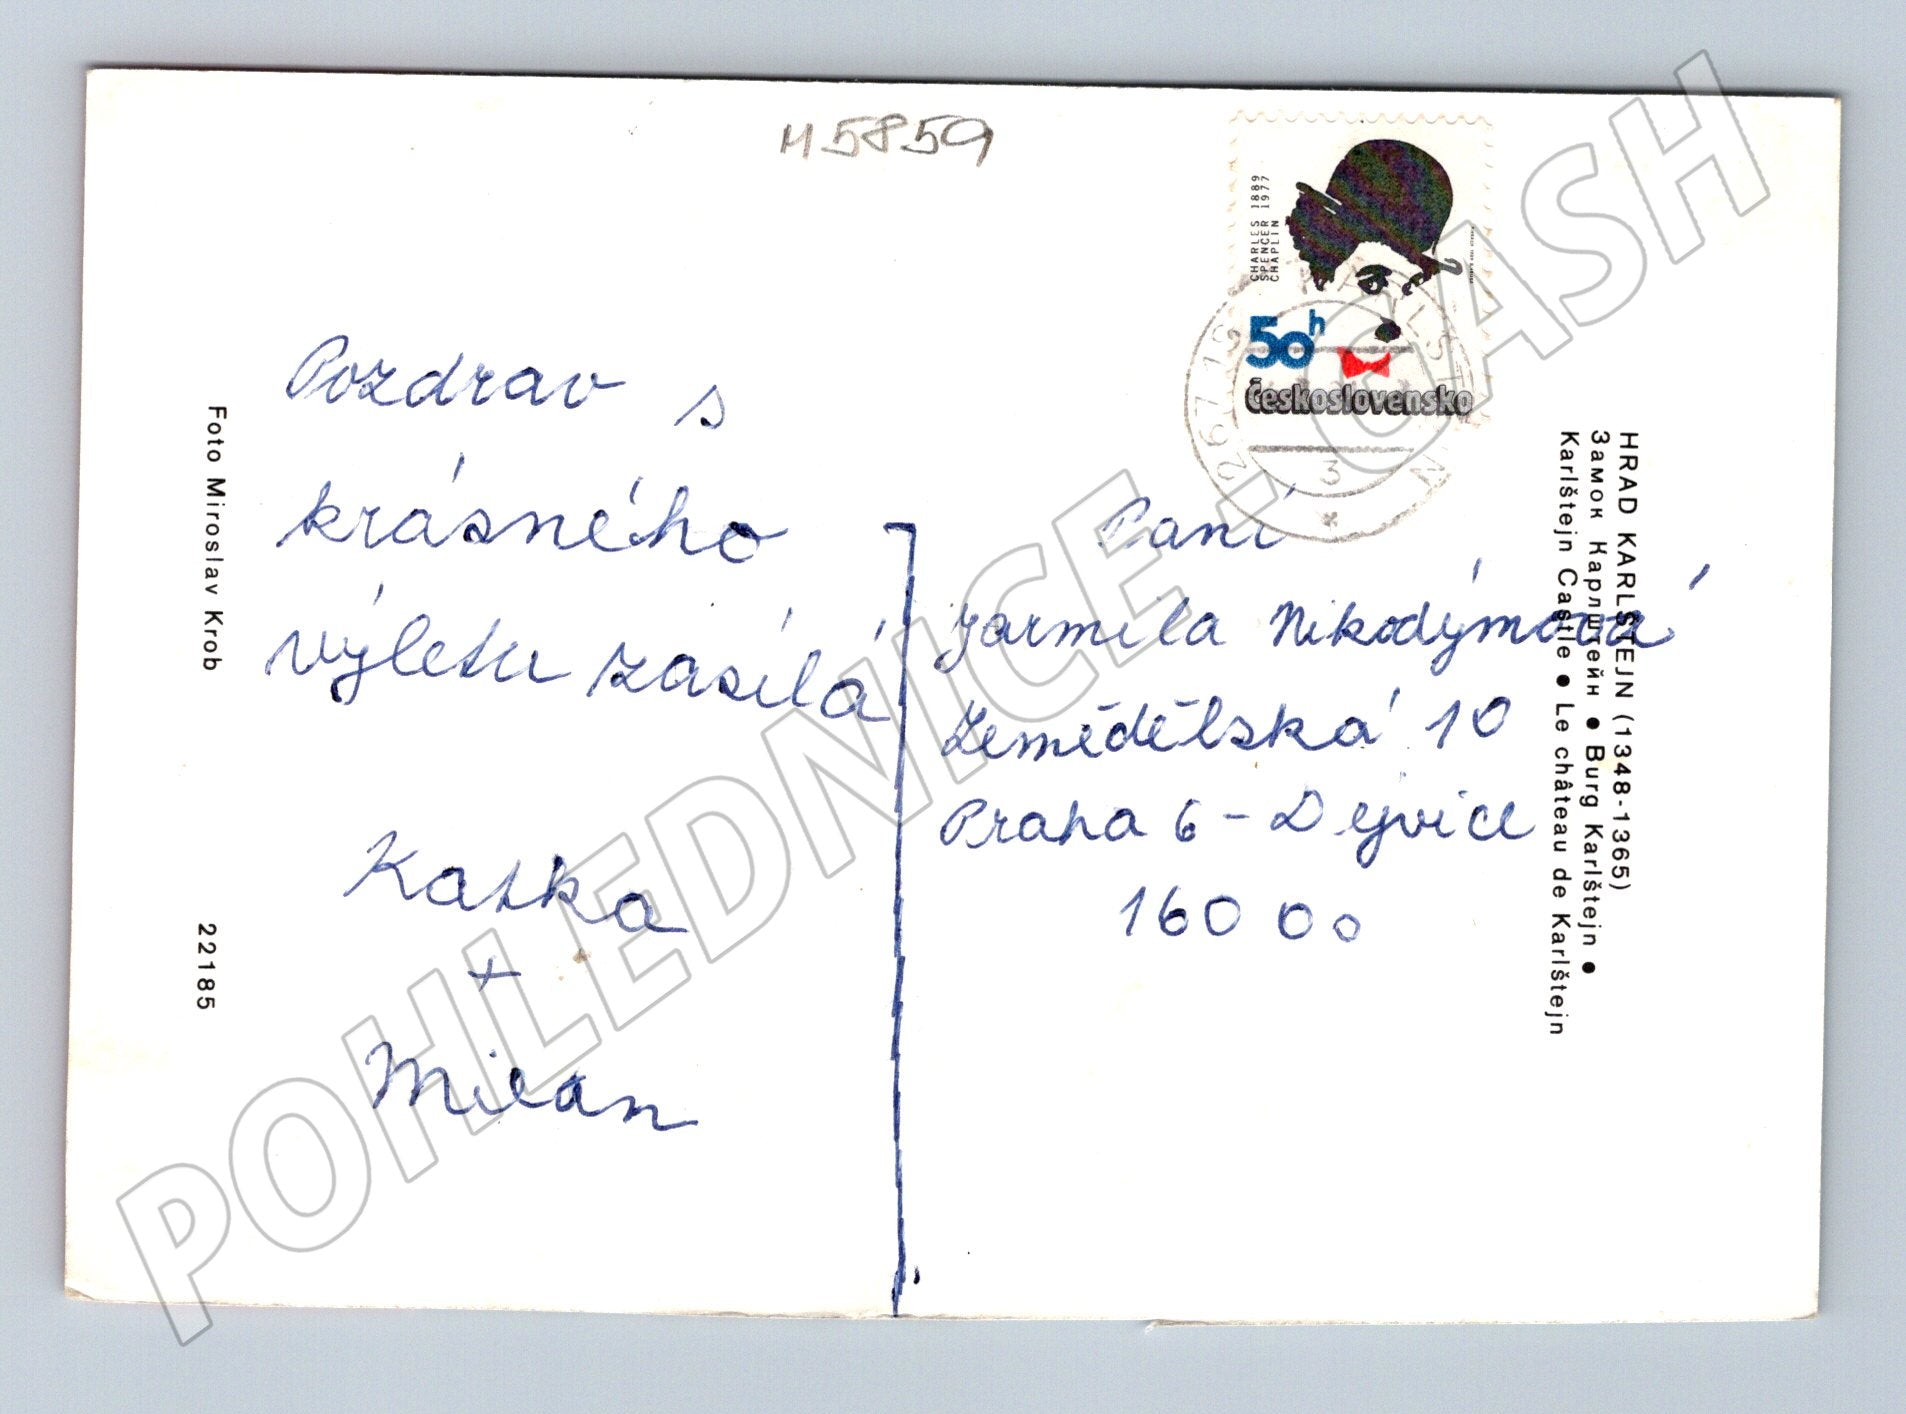 M5859
CHARLES 1889
SPENCER 1977
CHAPLIN
50h
Československo
267 18 KARLŠTEJN
3
Pozdrav s
krásného
výletu zasílá
Katka
+
Milan
Paní
Jarmila Nikodýmová
Zemědělská 10
Praha 6 - Dejvice
160 00
HRAD KARLŠTEJN (1348-1365)
Замок Карлштейн ● Burg Karlštejn ●
Karlštejn Castle ● Le château de Karlštejn
Foto Miroslav Krob
22185
POHLEDNICE-CASH